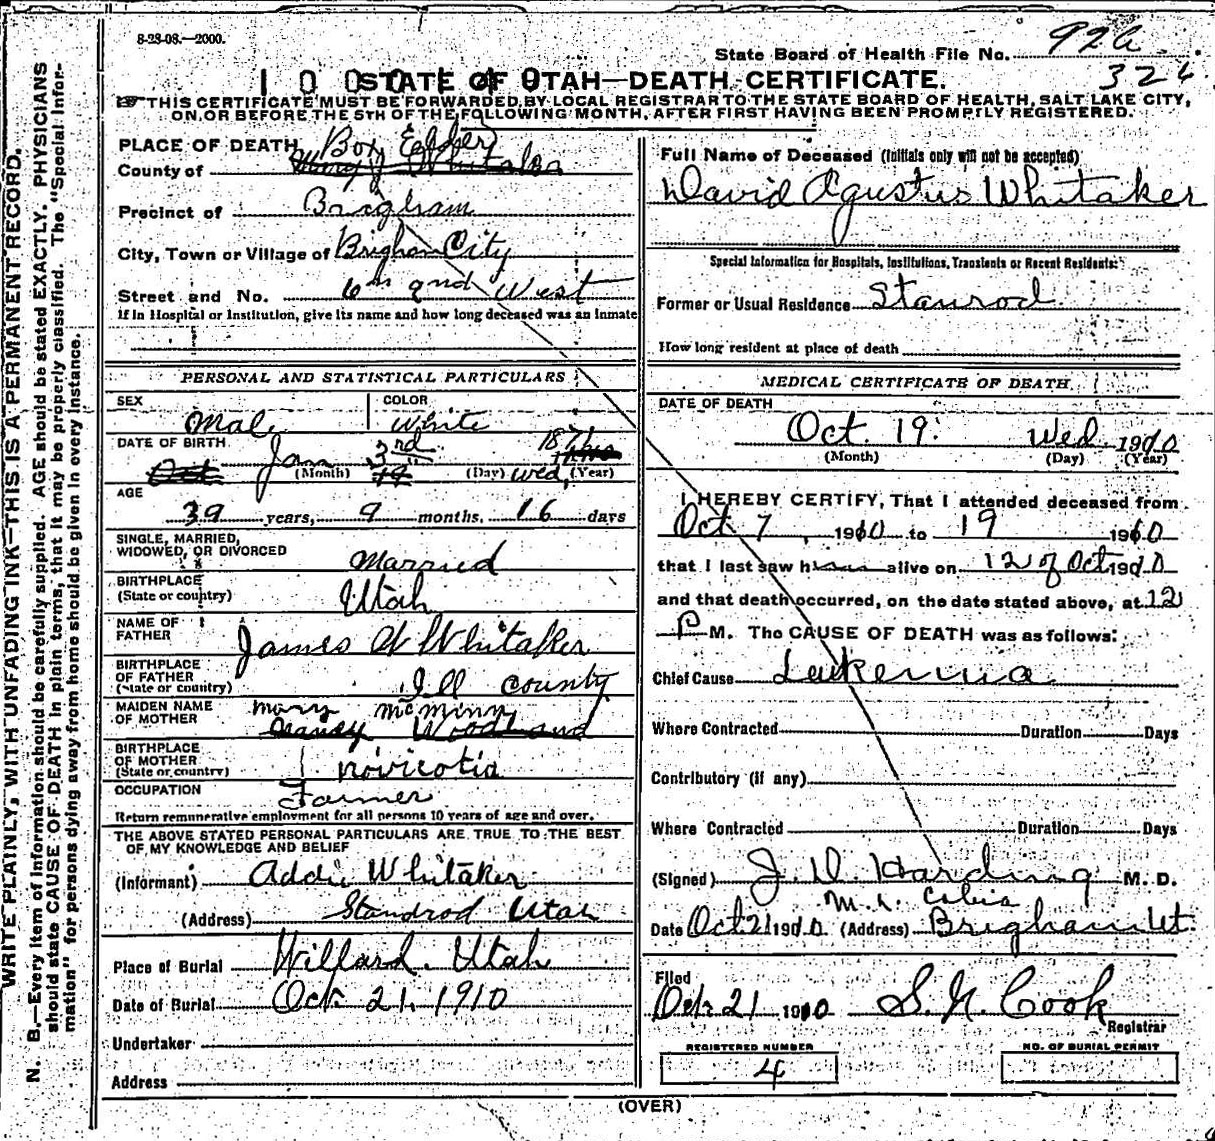 8-28-08.—2000.
State Board of Health File No. 926
326
STATE OF UTAH—DEATH CERTIFICATE.
THIS CERTIFICATE MUST BE FORWARDED BY LOCAL REGISTRAR TO THE STATE BOARD OF HEALTH, SALT LAKE CITY,
ON OR BEFORE THE 5TH OF THE FOLLOWING MONTH, AFTER FIRST HAVING BEEN PROMPTLY REGISTERED.
WRITE PLAINLY, WITH UNFADING INK—THIS IS A PERMANENT RECORD.
N. B.—Every item of information should be carefully supplied. AGE should be stated EXACTLY. PHYSICIANS
should state CAUSE OF DEATH in plain terms, that it may be properly classified. The "Special Infor-
mation" for persons dying away from home should be given in every instance.
PLACE OF DEATH
County of Box Elder
Precinct of Brigham
City, Town or Village of Brigham City
Street and No. 6th 2nd West
If in Hospital or Institution, give its name and how long deceased was an inmate
PERSONAL AND STATISTICAL PARTICULARS
SEX Male
COLOR White
DATE OF BIRTH Jan 3rd 187
(Month) (Day) Wed, (Year)
AGE
39 years, 9 months, 16 days
SINGLE, MARRIED,
WIDOWED, OR DIVORCED Married
BIRTHPLACE
(State or country) Utah
NAME OF
FATHER James W Whitaker
BIRTHPLACE
OF FATHER
(State or country) Ill county
MAIDEN NAME
OF MOTHER Mary McMinn
Nancy Woodland
BIRTHPLACE
OF MOTHER
(State or country) Novicotia
OCCUPATION Farmer
Return remunerative employment for all persons 10 years of age and over.
THE ABOVE STATED PERSONAL PARTICULARS ARE TRUE TO THE BEST
OF MY KNOWLEDGE AND BELIEF
(Informant) Addie Whitaker
(Address) Standrod Utah
Place of Burial Willard. Utah
Date of Burial Oct. 21, 1910
Undertaker
Address
Full Name of Deceased (Initials only will not be accepted)
David Agustus Whitaker
Special Information for Hospitals, Institutions, Transients or Recent Residents:
Former or Usual Residence Stanrod
How long resident at place of death
MEDICAL CERTIFICATE OF DEATH
DATE OF DEATH
Oct. 19. Wed 1910
(Month) (Day) (Year)
I HEREBY CERTIFY, That I attended deceased from
Oct 7, 1910 to 19 1910
that I last saw him alive on 12 of Oct 1910
and that death occurred, on the date stated above, at 12
P M. The CAUSE OF DEATH was as follows:
Chief Cause Leukemia
Where Contracted Duration Days
Contributory (if any)
Where Contracted Duration Days
(Signed) J. D. Harding M. D.
Date Oct 21 1910 (Address) Brigham Ut.
Filed
Oct. 21 1910 S. N. Cook
Registrar
REGISTERED NUMBER
4
NO. OF BURIAL PERMIT
(OVER)